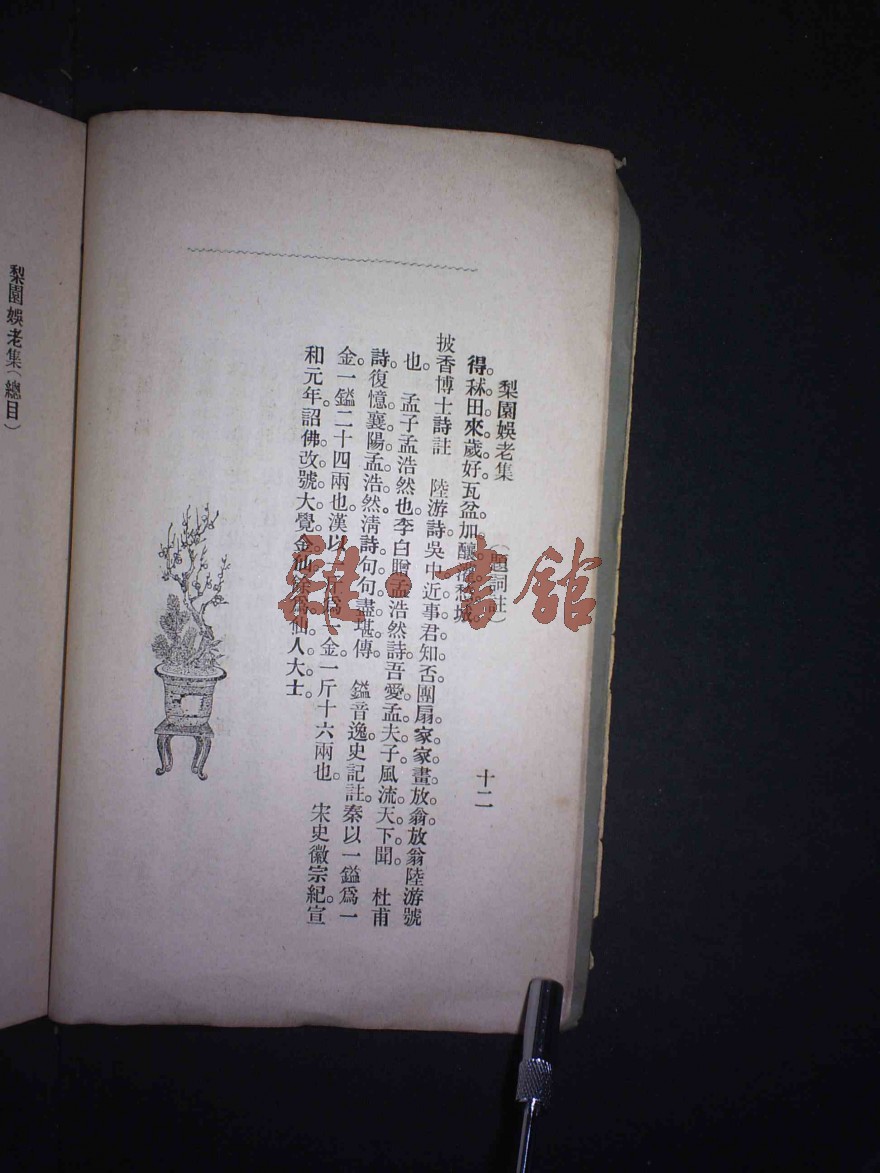 梨園娛老集 (題詞註) 十二
得。秫田來歲好。瓦盆加釀 愁城。
披香博士詩註 陸游詩吳中近事君知否。團扇家家畫放翁。放翁陸游號
也。 孟子孟浩然也。李白贈孟浩然詩吾愛孟夫子。風流天下聞 杜甫
詩。復憶襄陽孟浩然。清詩句句盡堪傳。 鎰音逸史記註。秦以一鎰爲一
金。一鎰二十四兩也。漢以一斤爲一金。一斤十六兩也。 宋史徽宗紀。宣
和元年。詔佛改號大覺金仙。餘爲仙人大士。
梨園娛老集(總目)
雜·書館